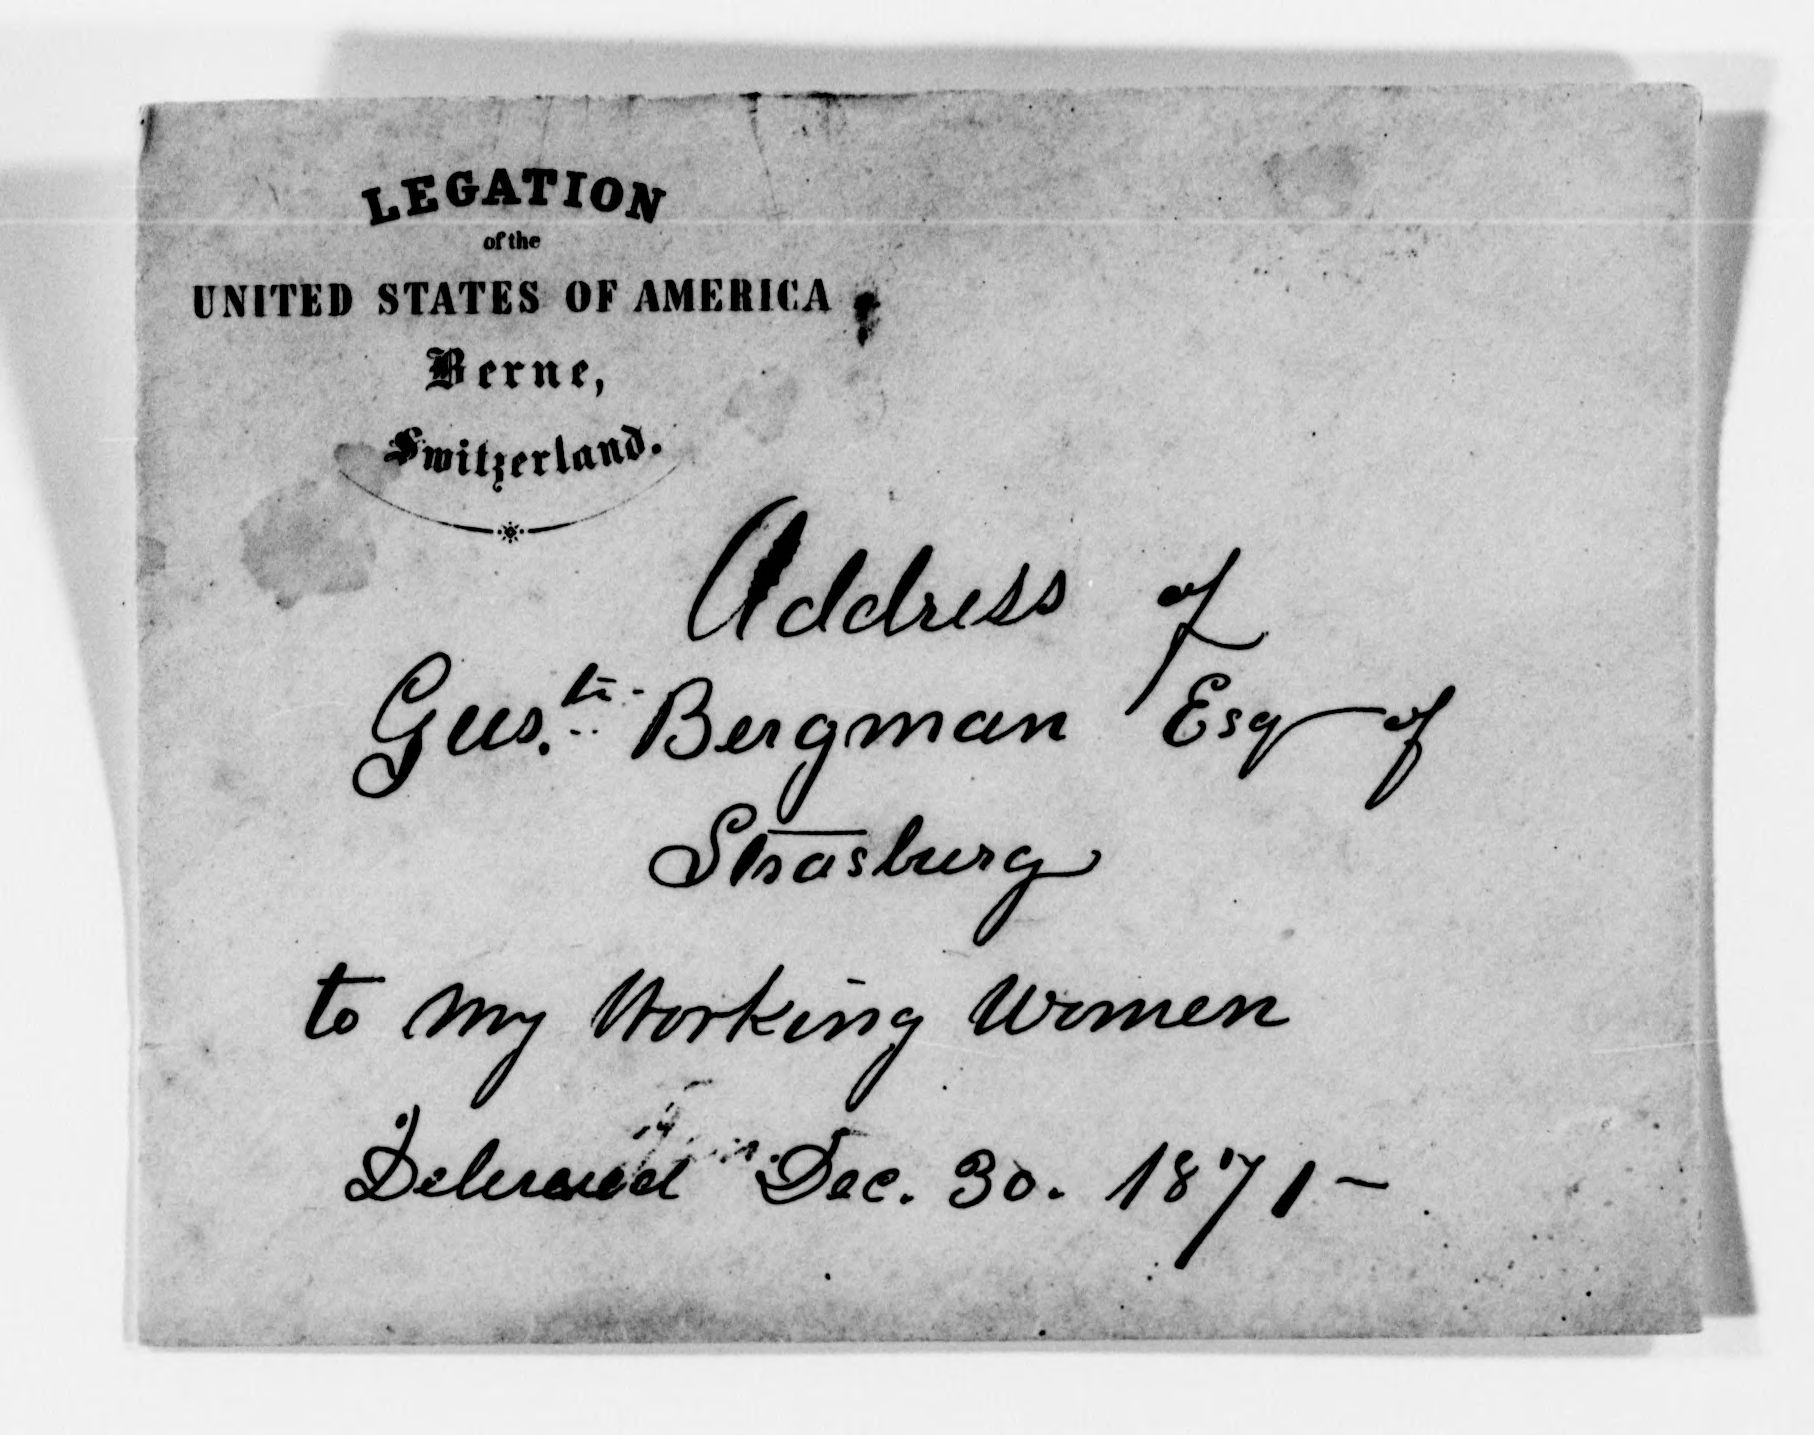 LEGATION
of the
UNITED STATES OF AMERICA
Berne,
Switzerland.
Address of
Gus. Bergman Esq of
Strasburg
to my Working Women
Delivered Dec. 30. 1871 —